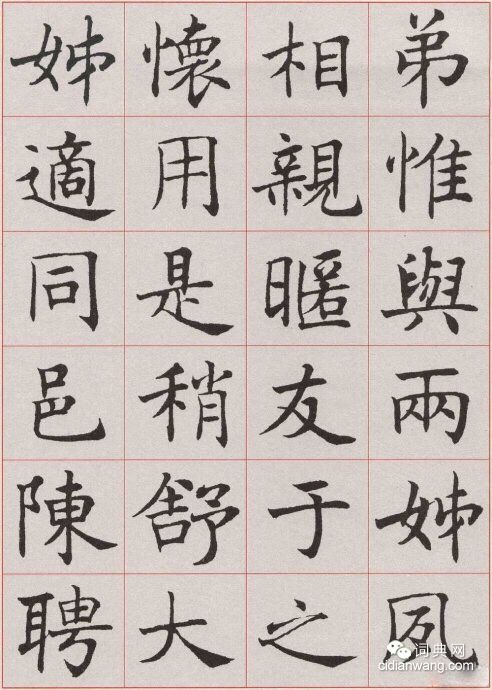 弟惟與兩姊夙
相親暱友于之
懷用是稍舒大
姊適同邑陳聘
词典网
cidianwang.com